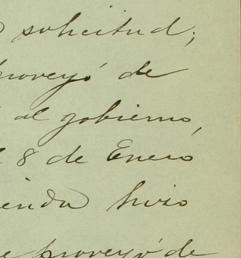 solicitud;
proveyó de
al gobierno,
8 de Enero
hizo
proveyó de